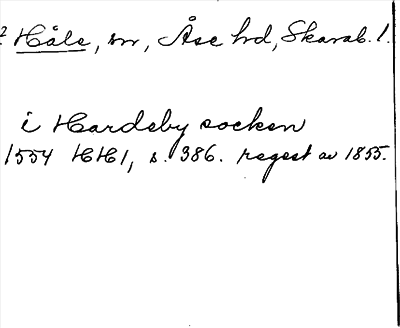 Håle, sn, Åse hd, Skarab. l.
i Hardeby socken
1554 HH1, s. 386. regest av 1855.